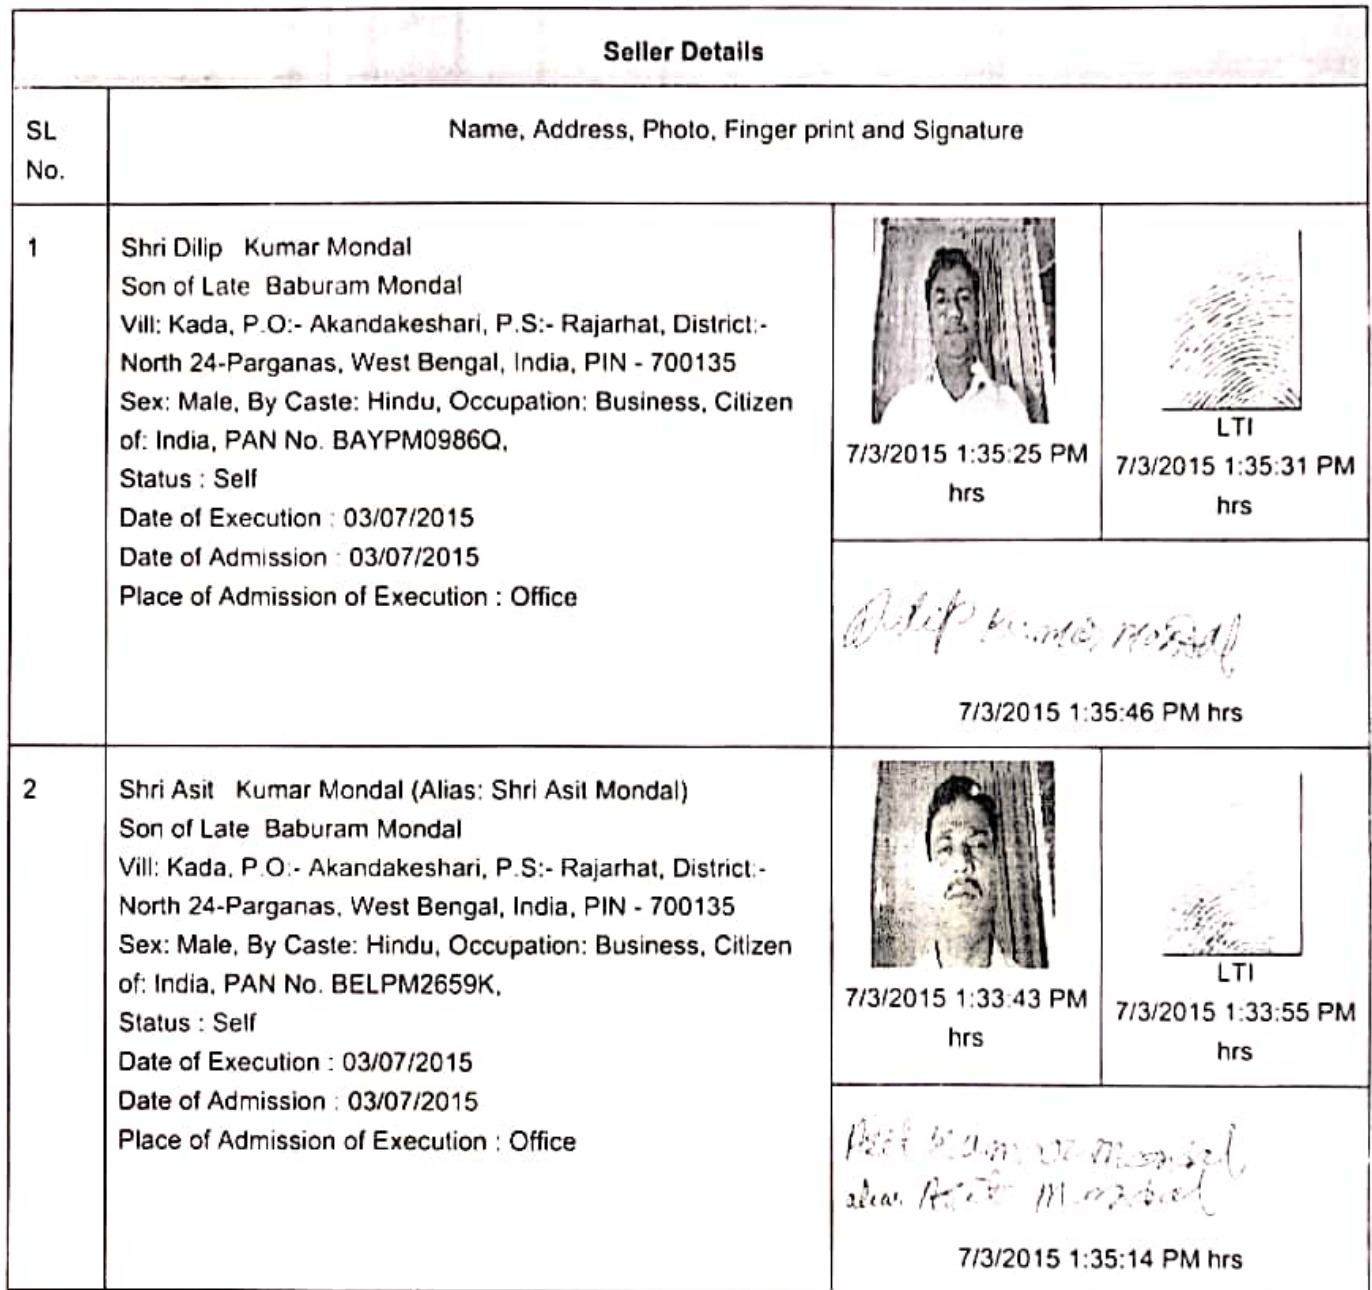 Seller Details
SL No.
Name, Address, Photo, Finger print and Signature
1
Shri Dilip Kumar Mondal
Son of Late Baburam Mondal
Vill: Kada, P.O:- Akandakeshari, P.S:- Rajarhat, District:-
North 24-Parganas, West Bengal, India, PIN - 700135
Sex: Male, By Caste: Hindu, Occupation: Business, Citizen
of: India, PAN No. BAYPM0986Q,
Status : Self
Date of Execution : 03/07/2015
Date of Admission : 03/07/2015
Place of Admission of Execution : Office
7/3/2015 1:35:25 PM
hrs
LTI
7/3/2015 1:35:31 PM
hrs
Dilip Kumar Mondal
7/3/2015 1:35:46 PM hrs
2
Shri Asit Kumar Mondal (Alias: Shri Asit Mondal)
Son of Late Baburam Mondal
Vill: Kada, P.O:- Akandakeshari, P.S:- Rajarhat, District:-
North 24-Parganas, West Bengal, India, PIN - 700135
Sex: Male, By Caste: Hindu, Occupation: Business, Citizen
of: India, PAN No. BELPM2659K,
Status : Self
Date of Execution : 03/07/2015
Date of Admission : 03/07/2015
Place of Admission of Execution : Office
7/3/2015 1:33:43 PM
hrs
LTI
7/3/2015 1:33:55 PM
hrs
Asit Kumar Mondal
alias Asit Mondal
7/3/2015 1:35:14 PM hrs